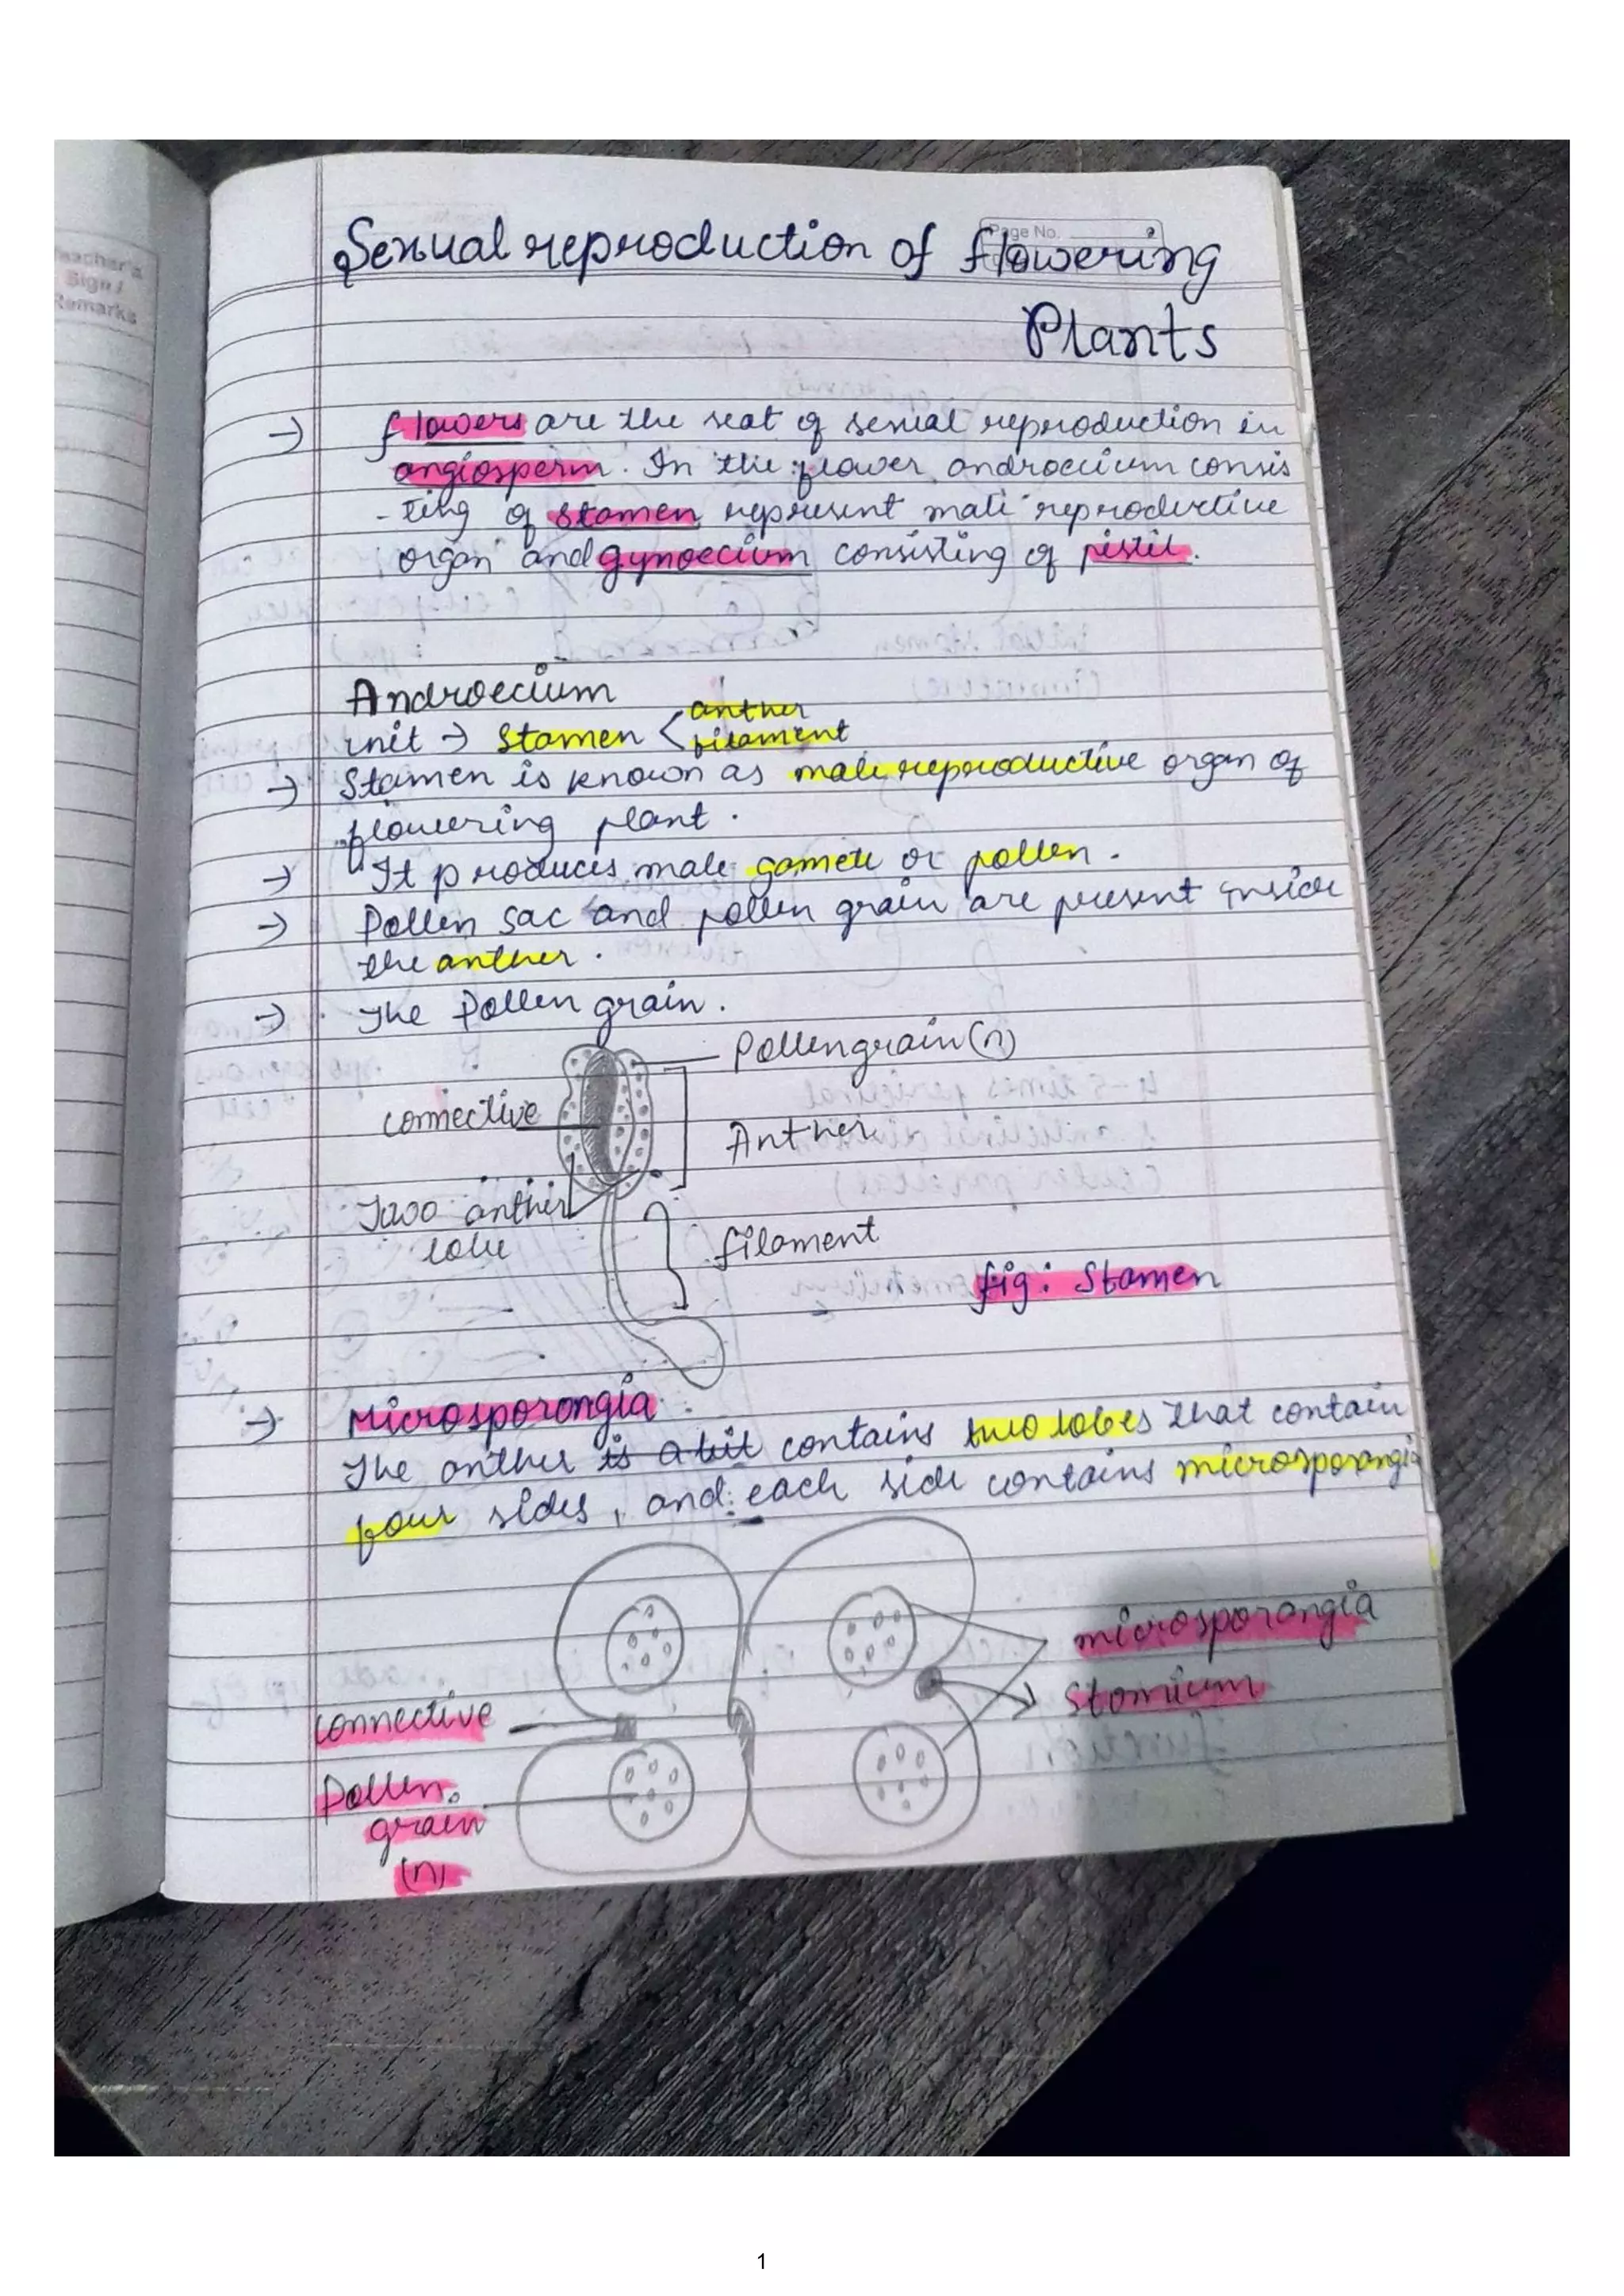 Teacher's
Sign /
Remarks
Page No.
Sexual reproduction of flowering
Plants
→ flowers are the seat of sexual reproduction in
angiosperm. In the flower, androecium consis
-ting of stamen represent male reproductive
organ and gynoecium consisting of pistil.
Androecium
unit → Stamen < anther
filament
→ Stamen is known as male reproductive organ of
flowering plant.
→ It produces male gamete or pollen.
→ Pollen sac and pollen grain are present inside
the anther.
→ The Pollen grain.
Pollengrain (n)
connective
Anther
Two anther
lobe
filament
fig: Stamen
→ Microsporongia:
The anther is a bit contains two lobes that contain
four sides, and each side contains microsporangia
microsporongia
Stomium
connective
Pollen
grain
(n)
1